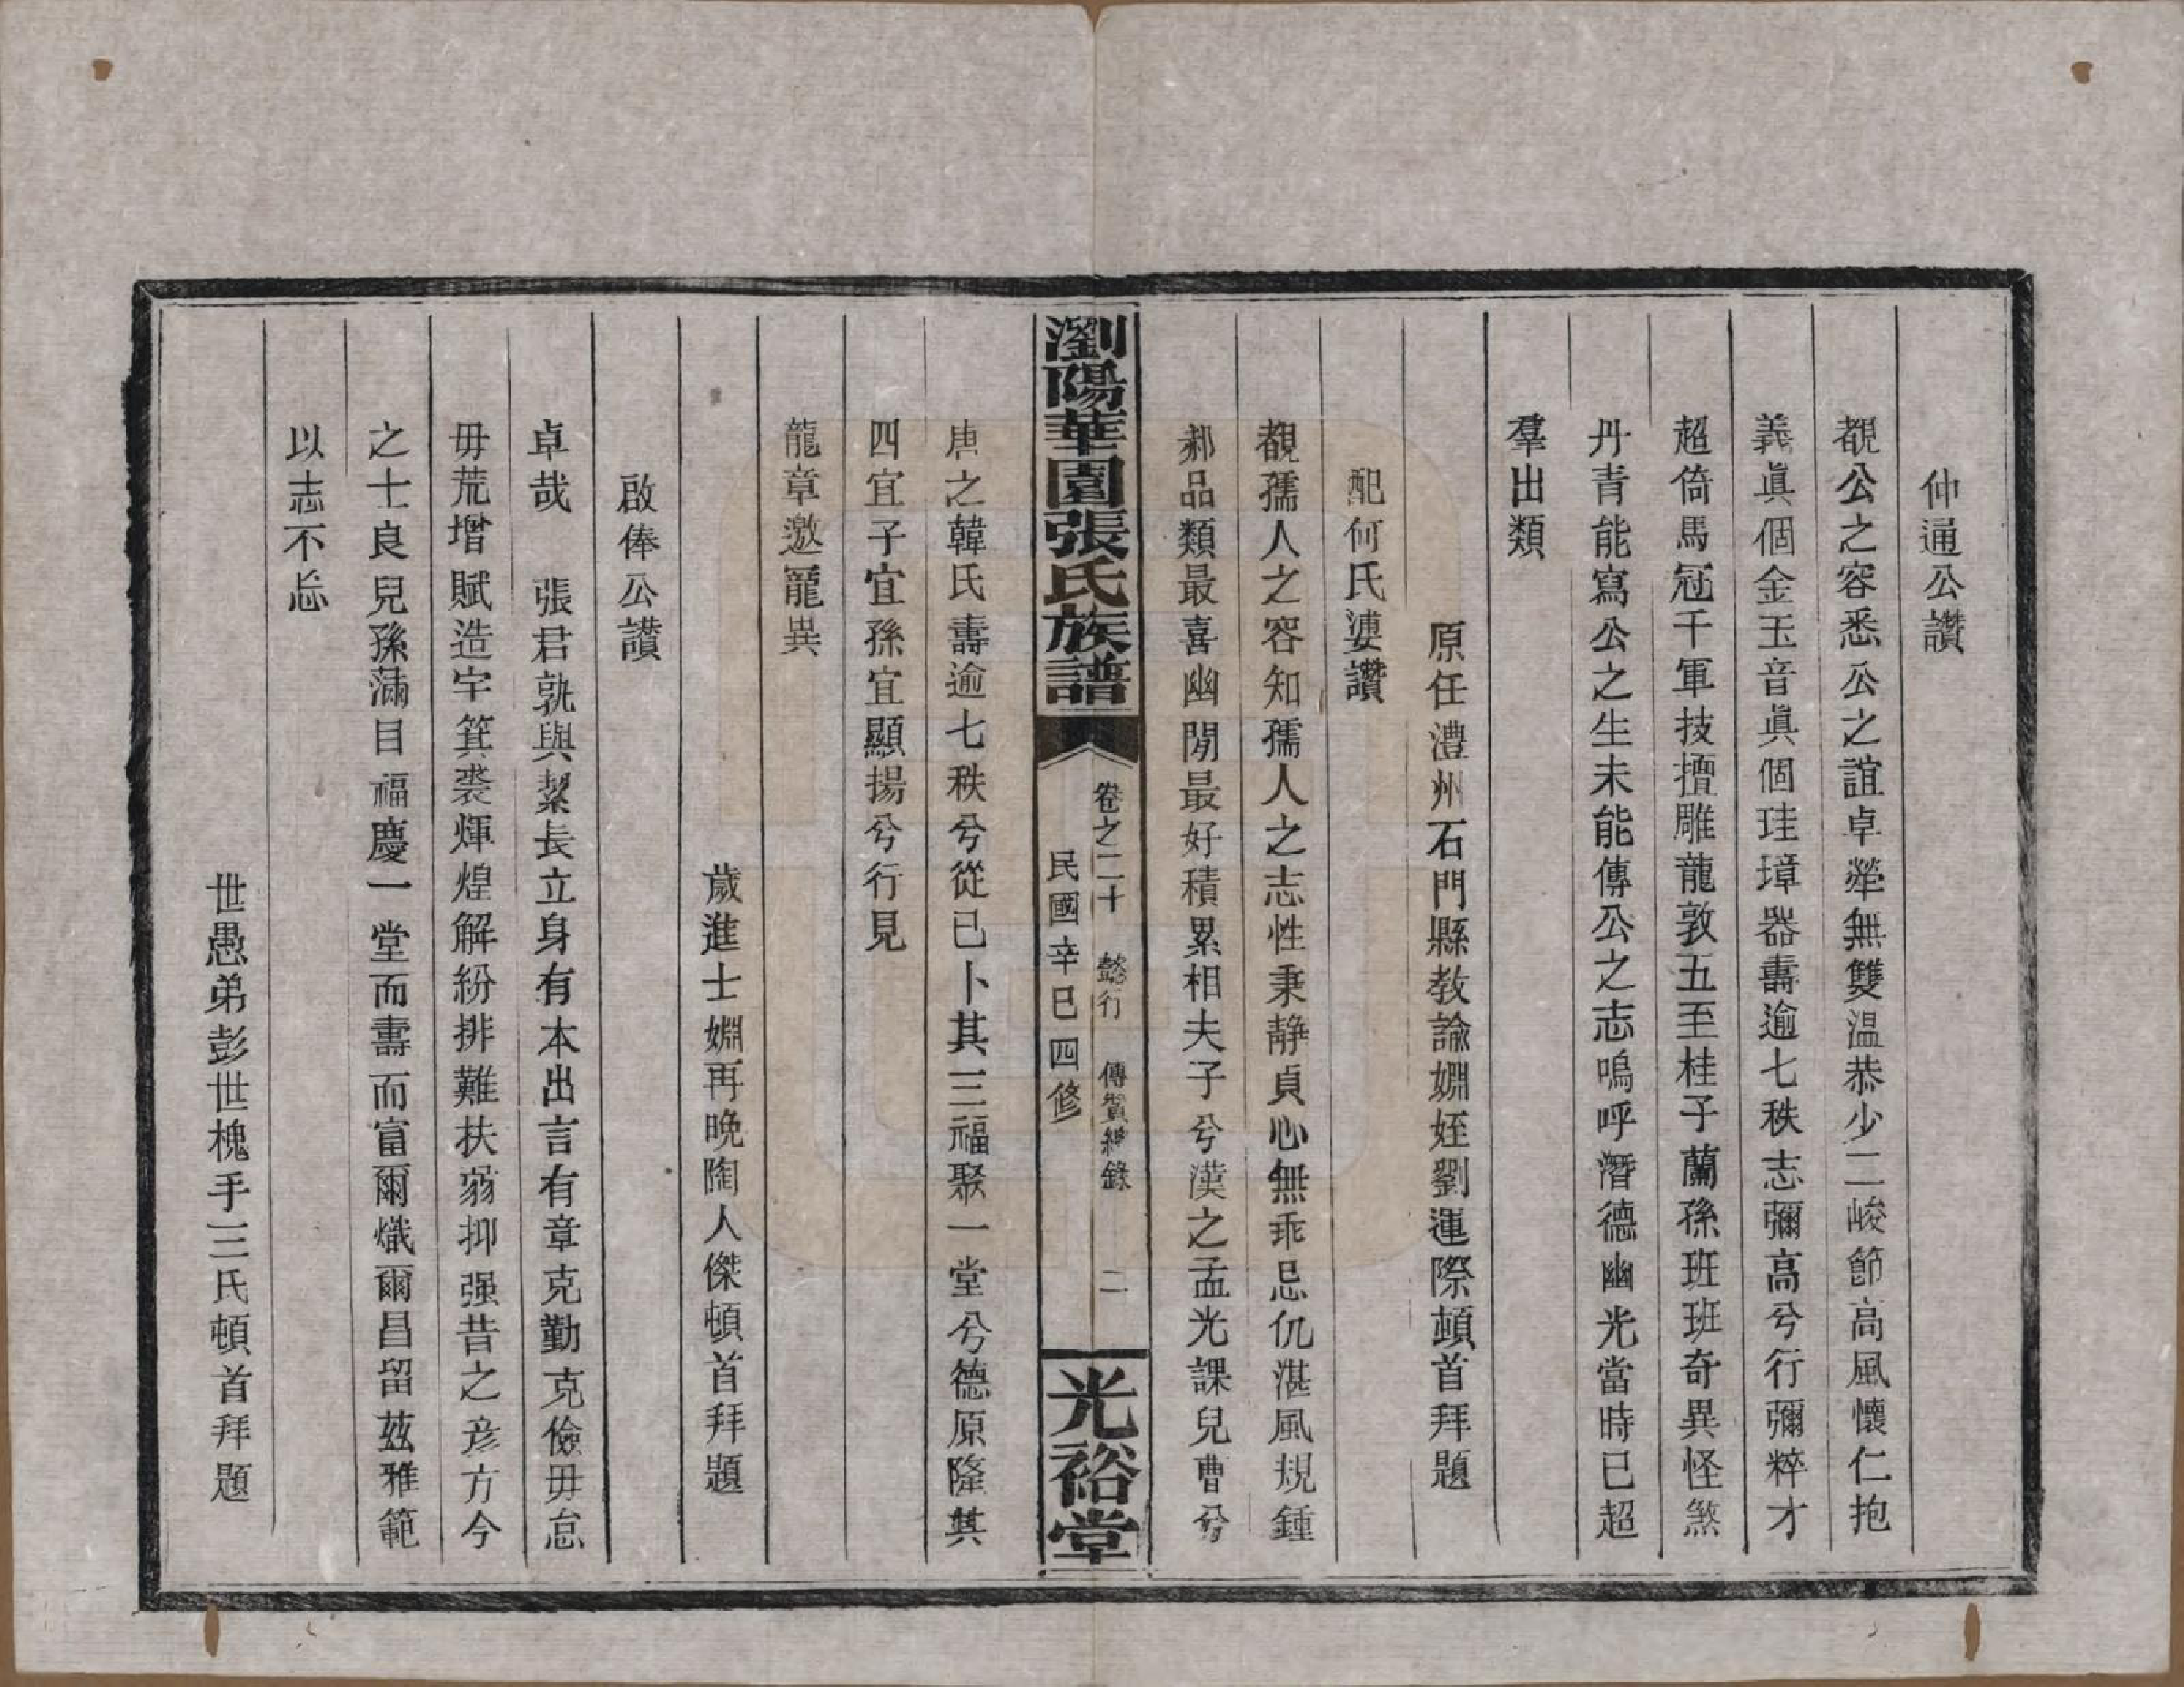 仲通公讚
覩公之容悉公之誼卓犖無雙溫恭少二峻節高風懷仁抱
義眞個金玉音眞個珪璋器壽逾七秩志彌高兮行彌粹才
超倚馬冠千軍技擅雕龍敦五至桂子蘭孫班班奇異怪煞
丹青能寫公之生未能傳公之志嗚呼潛德幽光當時已超
羣出類
原任澧州石門縣教諭姻姪劉運際頓首拜題
配何氏婆讚
覩孺人之容知孺人之志性秉靜貞心無乖忌伉湛風規鍾
郝品類最喜幽閒最好積累相夫子兮漢之孟光課兒曹兮
瀏陽華園張氏族譜
卷之二十 懿行 傳贊總錄 二
民國辛巳四修
光裕堂
唐之韓氏壽逾七秩兮從已卜其三福聚一堂兮德原隆其
四宜子宜孫宜顯揚兮行見
龍章邀寵異
歲進士姻再晚陶人傑頓首拜題
啟俸公讚
卓哉 張君孰與絜長立身有本出言有章克勤克儉毋怠
毋荒增賦造宇箕裘煇煌解紛排難扶弱抑强昔之彥方今
之士良兒孫滿目福慶一堂而壽而富爾熾爾昌留茲雅範
以志不忘
世愚弟彭世槐手三氏頓首拜題